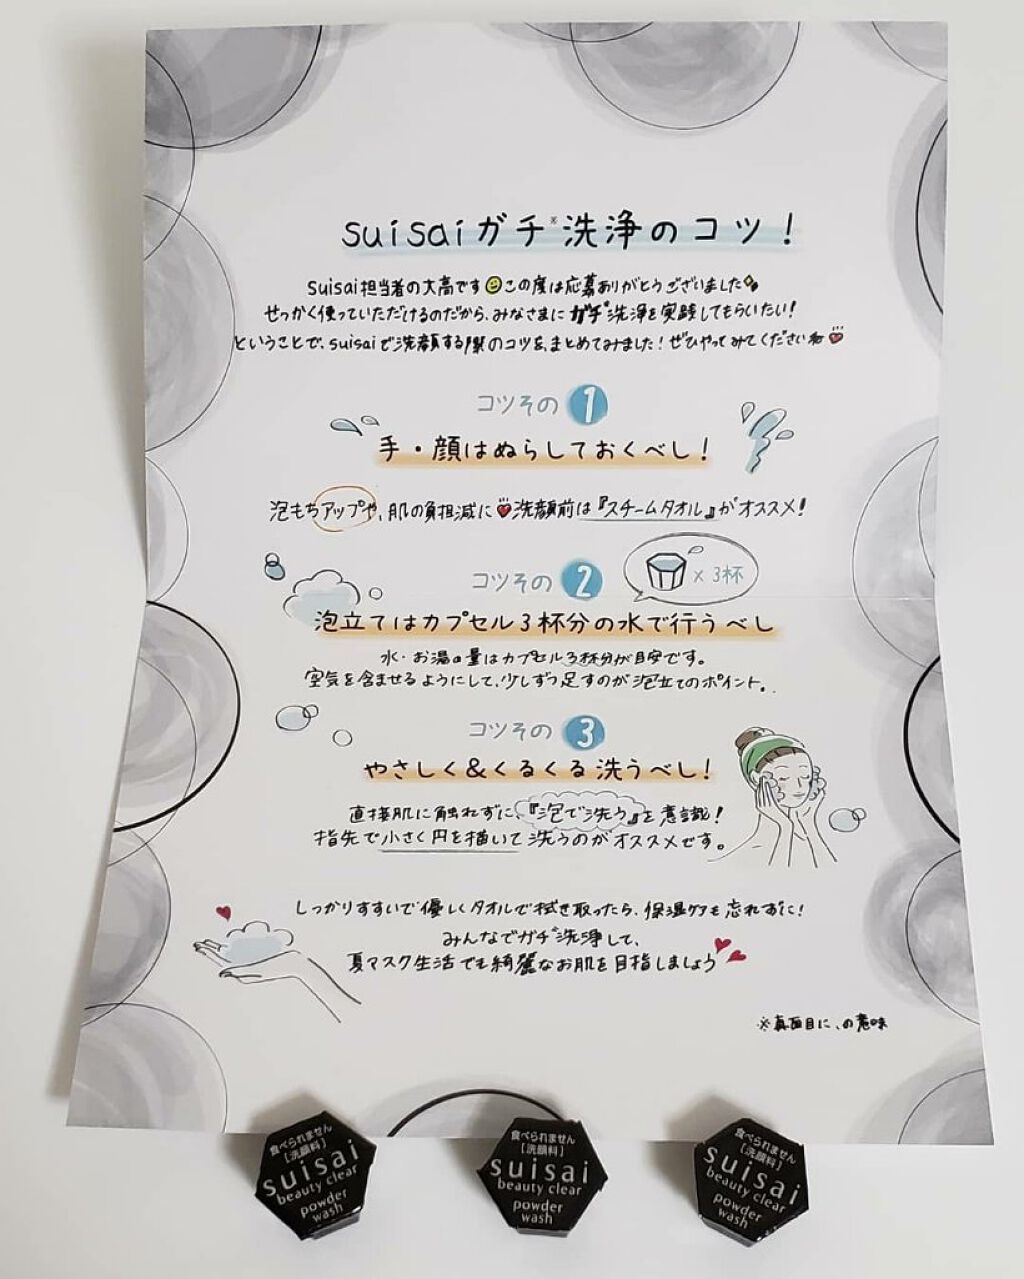 suisaiガチ※洗浄のコツ！
suisai担当者の大高ですこの度は応募ありがとうございました
せっかく使っていただけるのだから、みなさまにガチ洗浄を実践してもらいたい！
ということで、suisaiで洗顔する際のコツをまとめてみました！ぜひやってみてくださいね
コツその1
手・顔はぬらしておくべし！
泡もちアップや、肌の負担減に洗顔前は『スチームタオル』がオススメ！
コツその2
×3杯
泡立てはカプセル3杯分の水で行うべし
水・お湯の量はカプセル3杯分が目安です。
空気を含ませるようにして、少しずつ足すのが泡立てのポイント。
コツその3
やさしく&くるくる洗うべし！
直接肌に触れずに、『泡で洗う』を意識！
指先で小さく円を描いて洗うのがオススメです。
しっかりすすいで優しくタオルで拭き取ったら、保湿ケアも忘れずに！
みんなでガチ洗浄して、
夏マスク生活でも綺麗なお肌を目指しましょう
※真面目に、の意味
食べられません
［洗顔料］
suisai
beauty clear
powder
wash
食べられません
［洗顔料］
suisai
beauty clear
powder
wash
食べられません
［洗顔料］
suisai
beauty clear
powder
wash